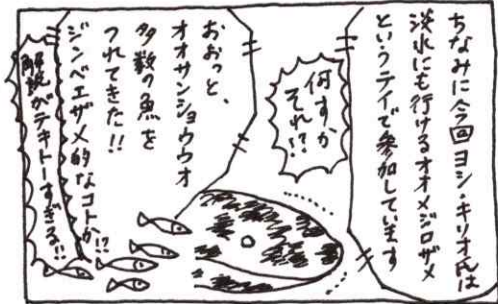 ちなみに今回ヨシ・キリオ氏は
淡水にも行けるオオメジロザメ
というテイで参加しています
何すか
それ!?
おおっと、
オオサンショウウオ
多数の魚を
つれてきた!!
ジンベエザメ的なコトか!?
解説がテキトーすぎる!!